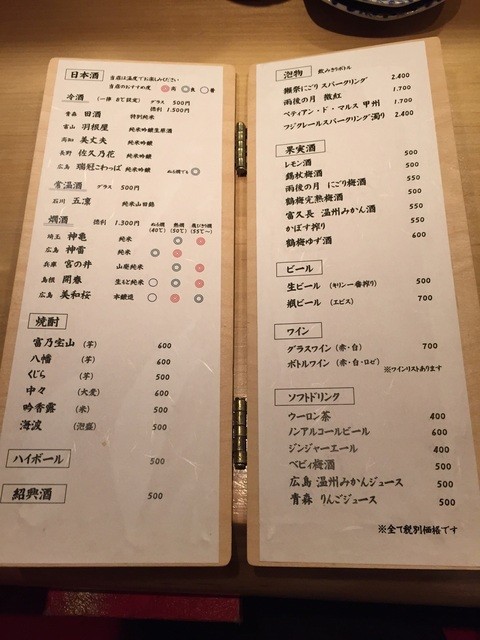 日本酒 当店は温度でお楽しみください
当店のおすすめ度 ◎高 ◎良 ○普
冷酒 (一律 8℃設定) グラス 500円
徳利 1.500円
青森 田酒 特別純米
富山 羽根屋 純米吟醸生原酒
高知 美丈夫 純米吟醸
長野 佐久乃花 純米吟醸
広島 瑞冠こわっぱ 純米吟醸 ぬる燗でも ◎
常温酒 グラス 500円
石川 五凛 純米山田錦
燗酒 徳利 1.300円 ぬる燗(40℃) 熱燗(50℃) 飛びきり燗(55℃〜)
埼玉 神亀 純米 ◎ ◎
広島 神雷 純米 ◎ ◎
兵庫 宮の井 山廃純米 ◎ ◎
島根 開春 生もと純米 ○ ◎ ◎
広島 美和桜 本醸造 ○ ◎ ◎
焼酎
富乃宝山 (芋) 600
八幡 (芋) 600
くじら (芋) 500
中々 (大麦) 600
吟香露 (米) 500
海波 (泡盛) 500
ハイボール 500
紹興酒 500
泡物 飲みきりボトル
獺祭にごり スパークリング 2.400
雨後の月 微紅 1.700
ペティアン・ド・マルス 甲州 1.700
フジクレールスパークリング濁り 2.400
果実酒
レモン酒 500
錫杖梅酒 550
雨後の月 にごり梅酒 550
鶴梅完熟梅酒 500
富久長 温州みかん酒 550
かぼす搾り 500
鶴梅ゆず酒 600
ビール
生ビール (キリン一番搾り) 500
瓶ビール (エビス) 700
ワイン
グラスワイン (赤・白) 700
ボトルワイン (赤・白・ロゼ)
※ワインリストあります
ソフトドリンク
ウーロン茶 400
ノンアルコールビール 600
ジンジャーエール 400
ベビィ梅酒 500
広島 温州みかんジュース 500
青森 りんごジュース 500
※全て税別価格です